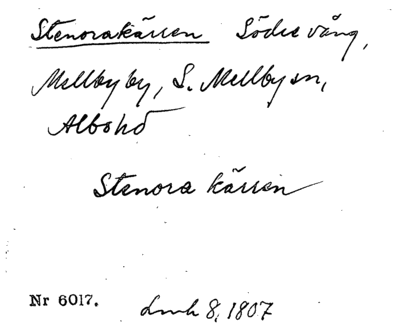 Stenorakärren Södre vång,
Mellby by, S. Mellby sn,
Albo hd
Stenora kärren
Nr 6017. Lmh 8, 1807